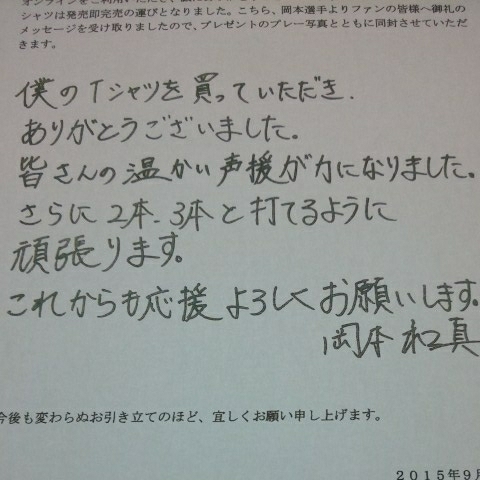 オンラインをご利用いただき、
シャツは発売即完売の運びとなりました。こちら、岡本選手よりファンの皆様へ御礼の
メッセージを受け取りましたので、プレゼントのプレー写真とともに同封させていただ
きます。
僕のTシャツを買っていただき、
ありがとうございました。
皆さんの温かい声援が力になりました。
さらに2本、3本と打てるように
頑張ります。
これからも応援よろしくお願いします。
岡本和真
今後も変わらぬお引き立てのほど、宜しくお願い申し上げます。
2015年9月